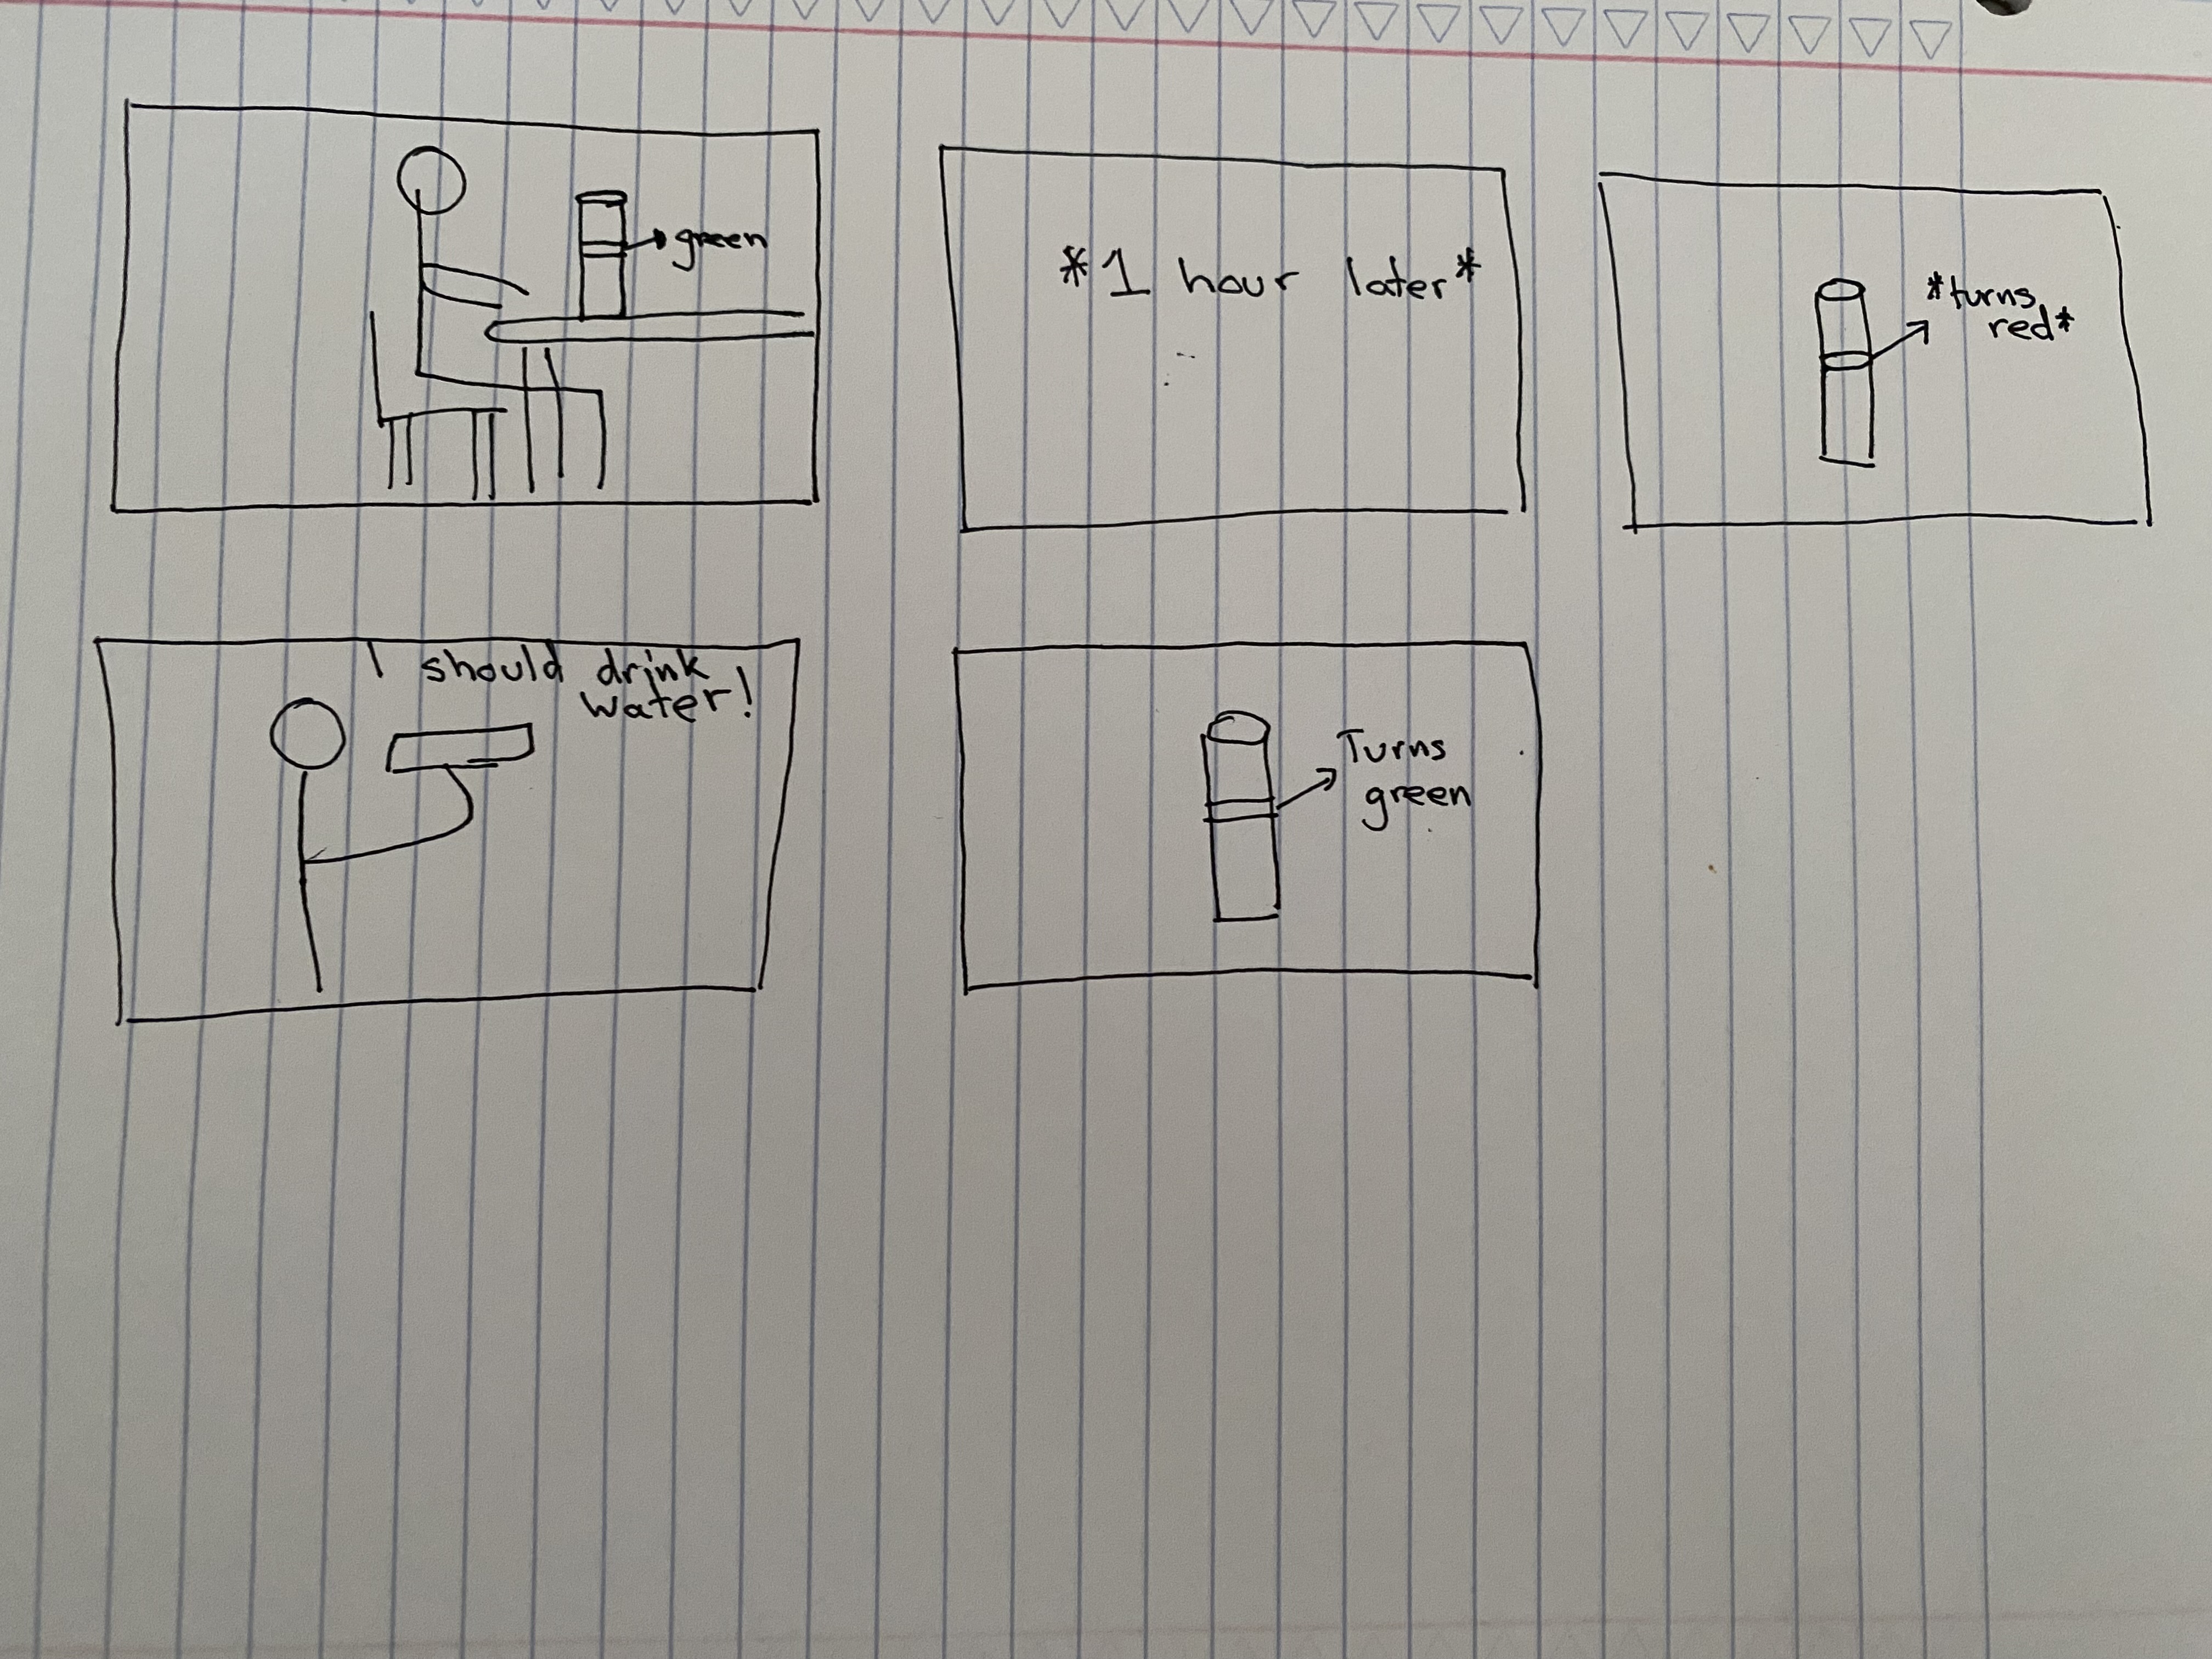 green
*1 hour later*
*turns
red*
I should drink
water!
Turns
green